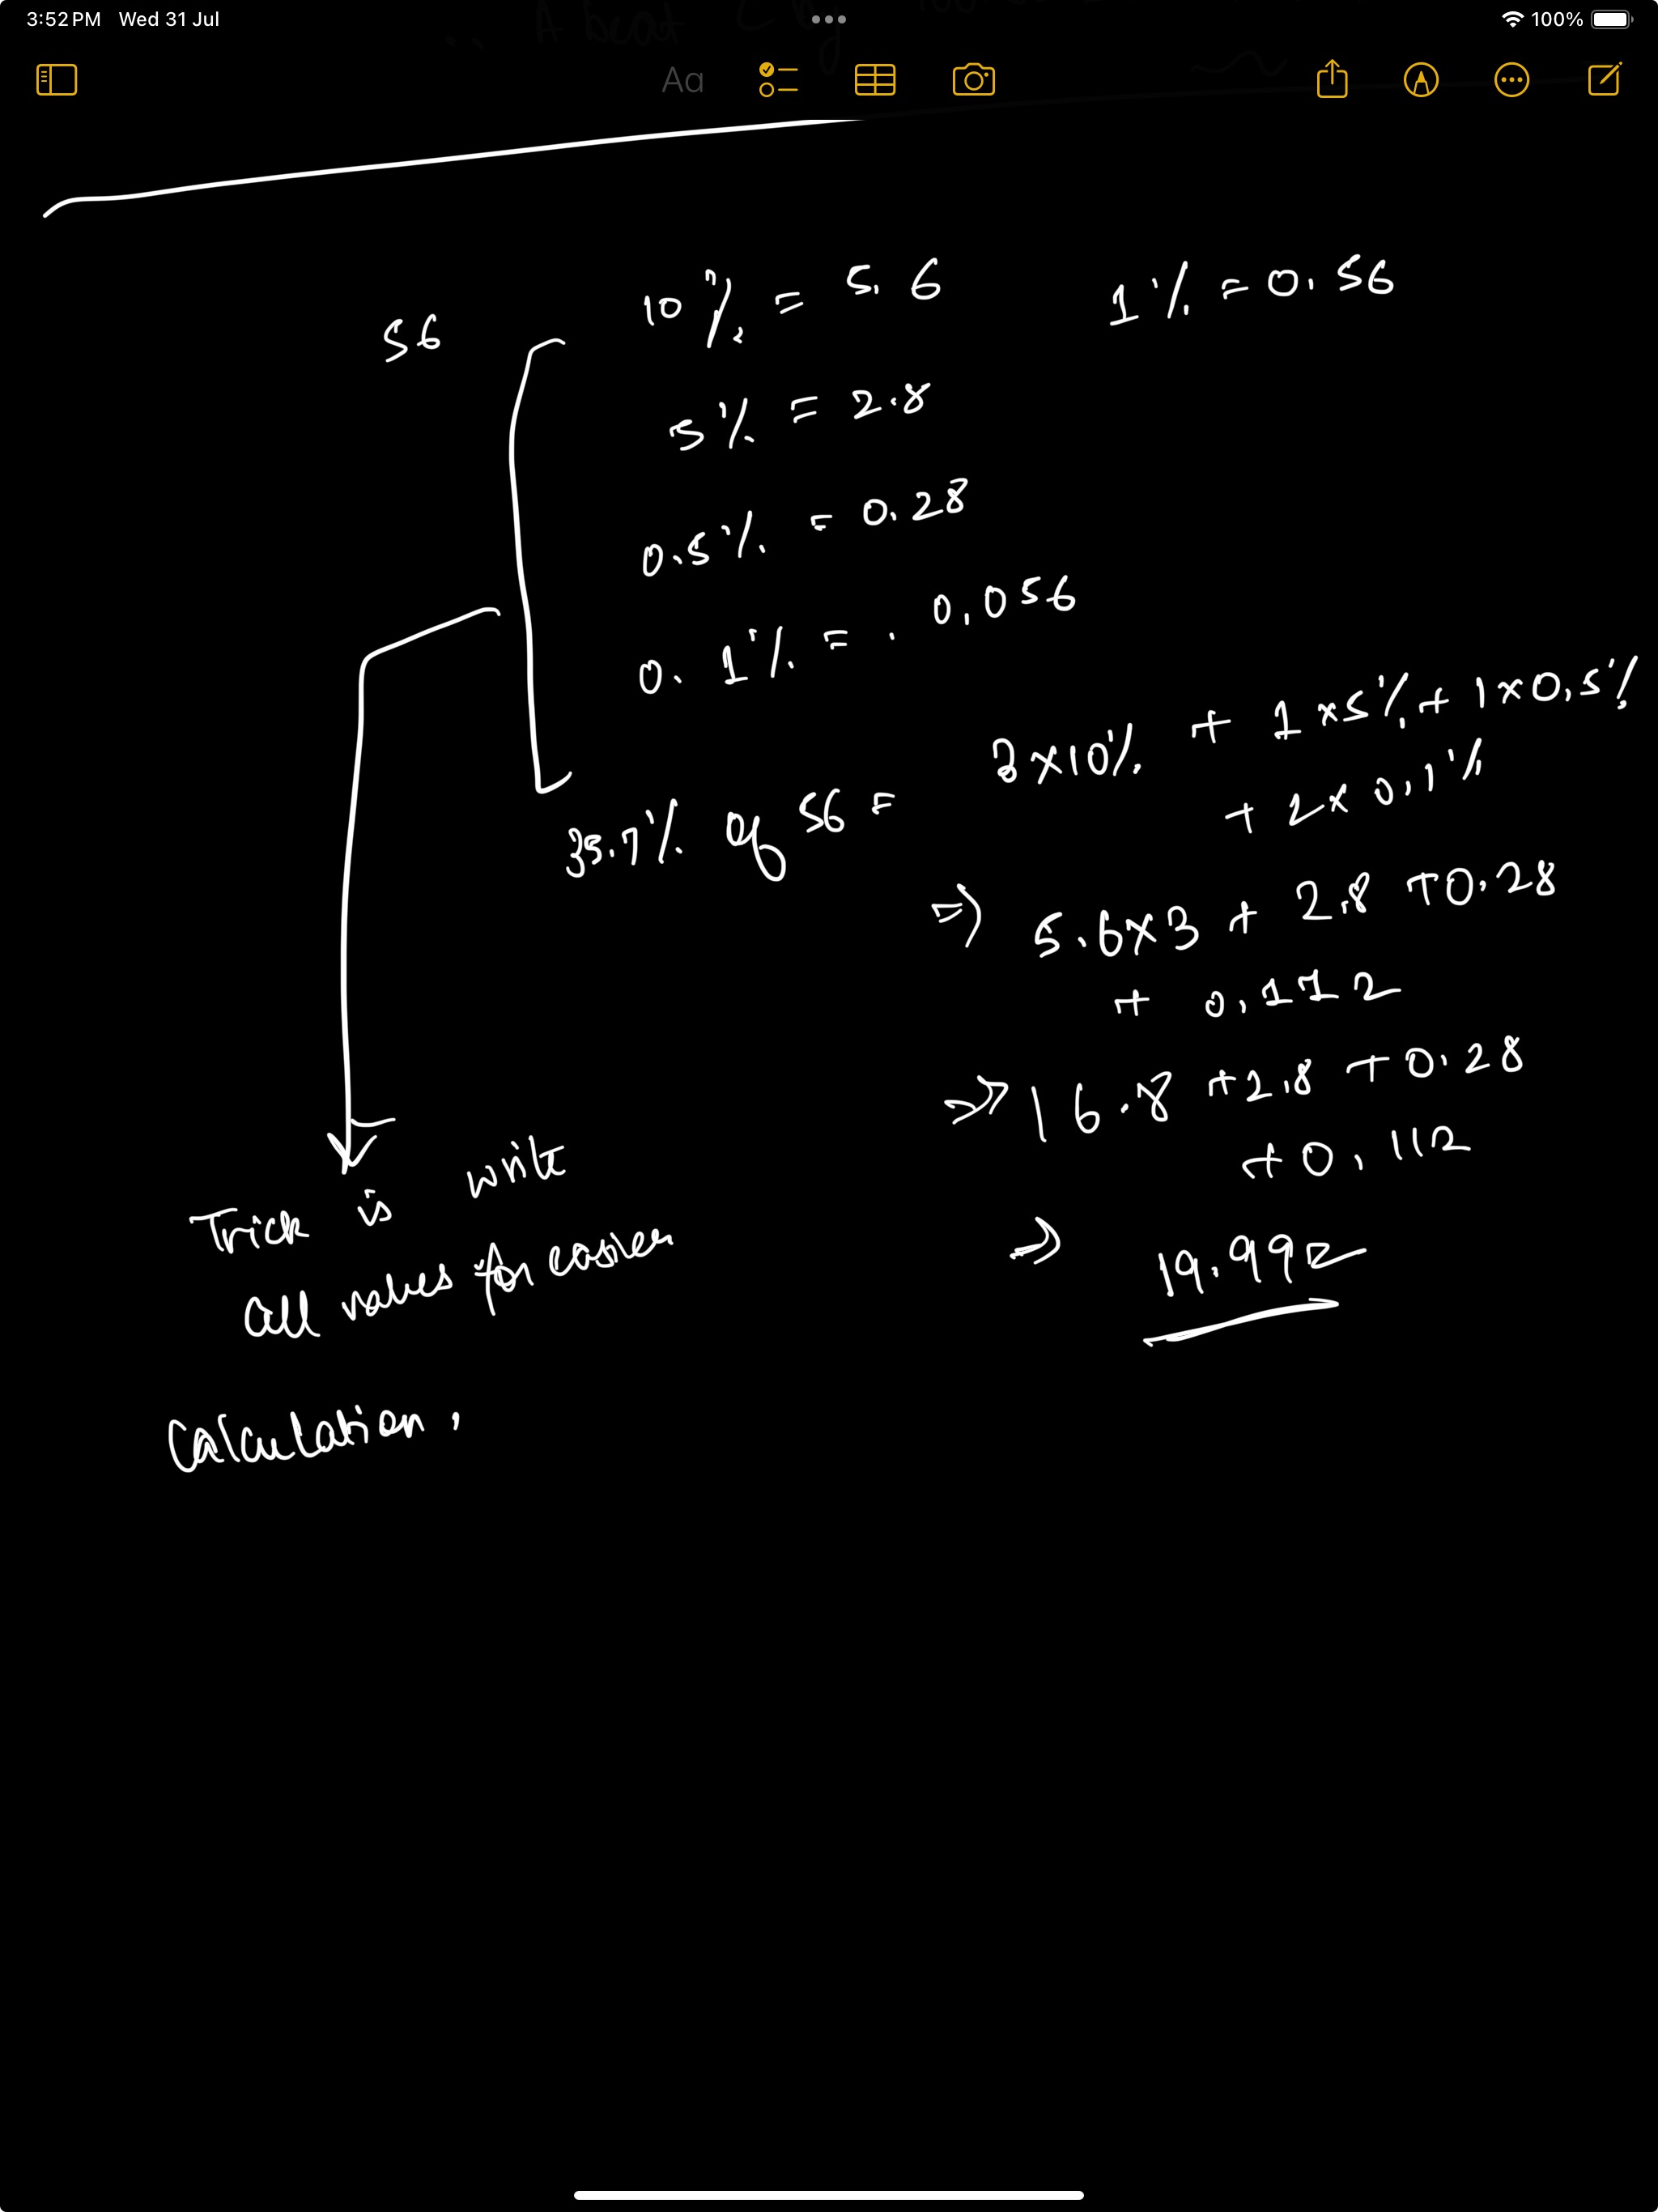 3:52 PM Wed 31 Jul
100%
A beat C by
Aa
56
10% = 5.6
1% = 0.56
5% = 2.8
0.5% = 0.28
0.1% = . 0.056
35.7% of 56 = 3 × 10% + 1 × 5% + 1 × 0.5%
+ 2 × 0.1%
⇒ 5.6 × 3 + 2.8 + 0.28
+ 0.112
⇒ 16.8 + 2.8 + 0.28
+ 0.112
⇒ 19.992
Trick is write
all values for easier
Calculation.